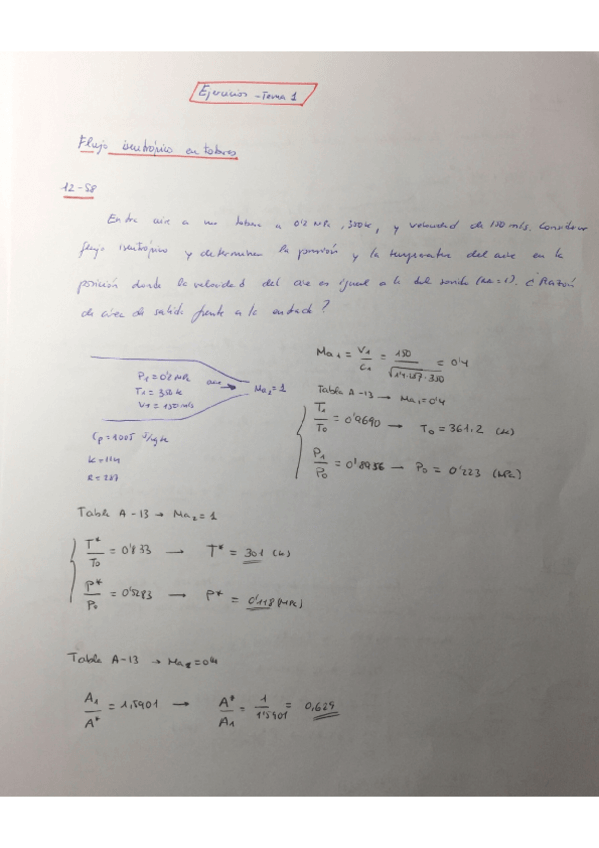 Ejercicios - Tema 1
Flujo isentrópico en toberas
12-58
Entra aire a una tobera a 0'2 MPa, 350k, y velocidad de 150 m/s. Considerar
flujo isentrópico y determinar la presión y la temperatura del aire en la
posición donde la velocidad del aire es igual a la del sonido (Ma=1). ¿Razón
de área de salida frente a la entrada?
P1 = 0'2 MPa
T1 = 350k
V1 = 150 m/s
aire → Ma2 = 1
Cp = 1005 J/kgk
k = 1'4
R = 287
Ma1 = V1/C1 = 150/√1'4·287·350 = 0'4
Tabla A-13 → Ma1=0'4
T1/T0 = 0'9690 → T0 = 361.2 (k)
P1/P0 = 0'8956 → P0 = 0'223 (MPa)
Tabla A-13 → Ma2 = 1
T*/T0 = 0'833 → T* = 301 (k)
P*/P0 = 0'5283 → P* = 0'118 (MPa)
Tabla A-13 → Ma=0'4
A1/A* = 1,5901 → A*/A1 = 1/1'5901 = 0,629